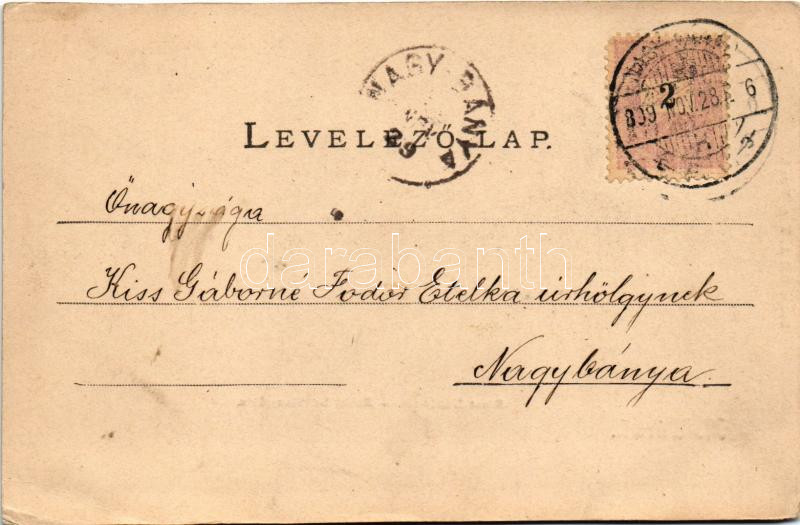 NAGY-BÁNYA
2
899 NOV. 28. 6
LEVELEZŐ LAP.
Önagysága
darabanth
Kiss Gáborné Fodor Etelka úrhölgynek
Nagybánya.